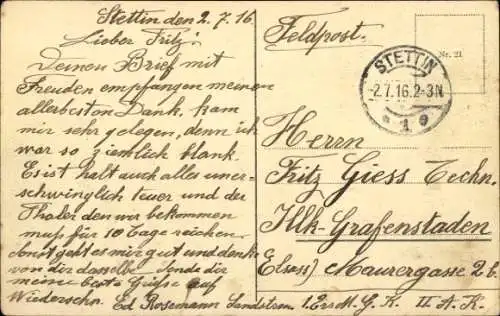 Stettin den 2.7.16
Lieber Fritz!
Deinen Brief mit
Freuden empfangen meinen
allerbesten Dank, kam
mir sehr gelegen, denn ich
war so ziemlich blank.
Es ist halt auch alles uner-
schwinglich teuer und der
Thaler den wir bekommen
muß für 10 Tage reichen.
Sonst geht es mir gut und denke
von dir dasselbe. Sende dir
meine beste Grüße auf
Wiedersehn. Ed Rosemann Landstrm. 1. Ers M. G. K. II A. K.
Feldpost.
Nr. 21
STETTIN
-2.7.16.2-3N
* 1 e
Herrn
Fritz Giess Techn.
Illk-Grafenstaden
Elsass) Maurergasse 2 b.